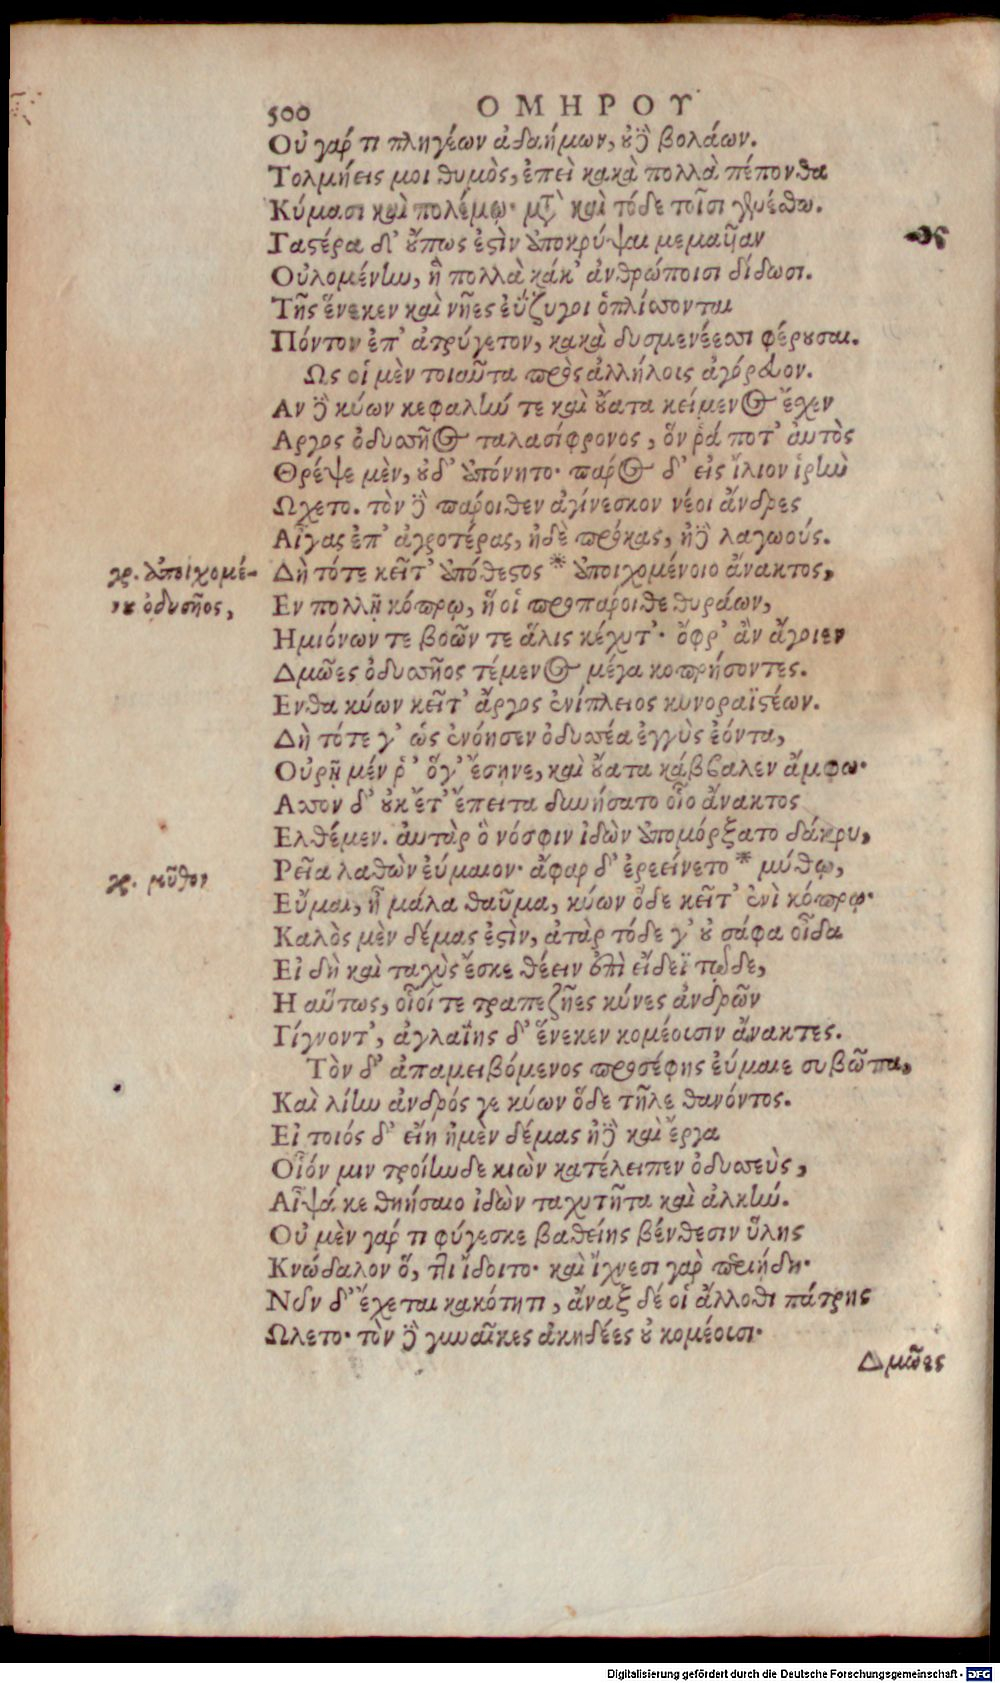 500 ΟΜΗΡΟΥ
Οὐ γάρ τι πληγέων ἀδαήμων, οὐδὲ βολάων.
Τολμήεις μοι θυμὸς, ἐπεὶ κακὰ πολλὰ πέπονθα
Κύμασι καὶ πολέμῳ· μετὰ καὶ τόδε τοῖσι γενέσθω.
Γαστέρα δ' οὔπως ἐστὶν ἀποκρύψαι μεμαυῖαν
Οὐλομένην, ἣ πολλὰ κάκ' ἀνθρώποισι δίδωσι.
Τῆς ἕνεκεν καὶ νῆες ἐΰζυγοι ὁπλίσσονται
Πόντον ἐπ' ἀτρύγετον, κακὰ δυσμενέεσσι φέρουσαι.
Ως οἱ μὲν τοιαῦτα πρὸς ἀλλήλοις ἀγόρευον.
Αν δὲ κύων κεφαλήν τε καὶ οὔατα κείμενος ἔσχεν
Αργος ὀδυσσῆος ταλασίφρονος, ὅν ῥά ποτ' αὐτὸς
Θρέψε μὲν, οὐδ' ἀπόνητο· πάρος δ' εἰς ἴλιον ἱρὴν
Ωχετο. τὸν δὲ πάροιθεν ἀγίνεσκον νέοι ἄνδρες
Αἶγας ἐπ' ἀγροτέρας, ἠδὲ πρόκας, ἠδὲ λαγωούς.
γρ. ἀποιχομέ-
Δὴ τότε κεῖτ' ἀπόθεστος * ἀποιχομένοιο ἄνακτος,
νου ὀδυσῆος,
Εν πολλῇ κόπρῳ, ἥ οἱ προπάροιθε θυράων,
Ημιόνων τε βοῶν τε ἅλις κέχυτ'· ὄφρ' ἂν ἄγοιεν
Δμῶες ὀδυσσῆος τέμενος μέγα κοπρήσοντες.
Ενθα κύων κεῖτ' ἄργος ἐνίπλειος κυνοραϊστέων.
Δὴ τότε γ' ὡς ἐνόησεν ὀδυσσέα ἐγγὺς ἐόντα,
Οὐρῇ μέν ῥ' ὅγ' ἔσηνε, καὶ οὔατα κάββαλεν ἄμφω·
Ασσον δ' οὐκ ἔτ' ἔπειτα δυνήσατο οἷο ἄνακτος
Ελθέμεν. αὐτὰρ ὃ νόσφιν ἰδὼν ἀπομόρξατο δάκρυ,
γρ. μῦθον
Ρεῖα λαθὼν εὔμαιον· ἄφαρ δ' ἐρεείνετο * μύθῳ,
Εὔμαι, ἦ μάλα θαῦμα, κύων ὅδε κεῖτ' ἐνὶ κόπρῳ·
Καλὸς μὲν δέμας ἐστὶν, ἀτὰρ τόδε γ' οὐ σάφα οἶδα
Εἰ δὴ καὶ ταχὺς ἔσκε θέειν ἐπὶ εἴδεϊ τῷδε,
Η αὔτως, οἷοί τε τραπεζῆες κύνες ἀνδρῶν
Γίγνοντ', ἀγλαΐης δ' ἕνεκεν κομέουσιν ἄνακτες.
Τὸν δ' ἀπαμειβόμενος προσέφης εὔμαιε συβῶτα,
Καὶ λίην ἀνδρός γε κύων ὅδε τῆλε θανόντος.
Εἰ τοιός δ' εἴη ἠμὲν δέμας ἠδὲ καὶ ἔργα
Οἷόν μιν τροίηνδε κιὼν κατέλειπεν ὀδυσσεὺς,
Αἶψά κε θηήσαιο ἰδὼν ταχυτῆτα καὶ ἀλκήν.
Οὐ μὲν γάρ τι φύγεσκε βαθείης βένθεσιν ὕλης
Κνώδαλον ὅ, τι ἴδοιτο· καὶ ἴχνεσι γὰρ περιῄδη·
Νῦν δ' ἔχεται κακότητι, ἄναξ δέ οἱ ἄλλοθι πάτρης
Ωλετο· τὸν δὲ γυναῖκες ἀκηδέες οὐ κομέουσι·
Δμῶες
Digitalisierung gefördert durch die Deutsche Forschungsgemeinschaft - DFG